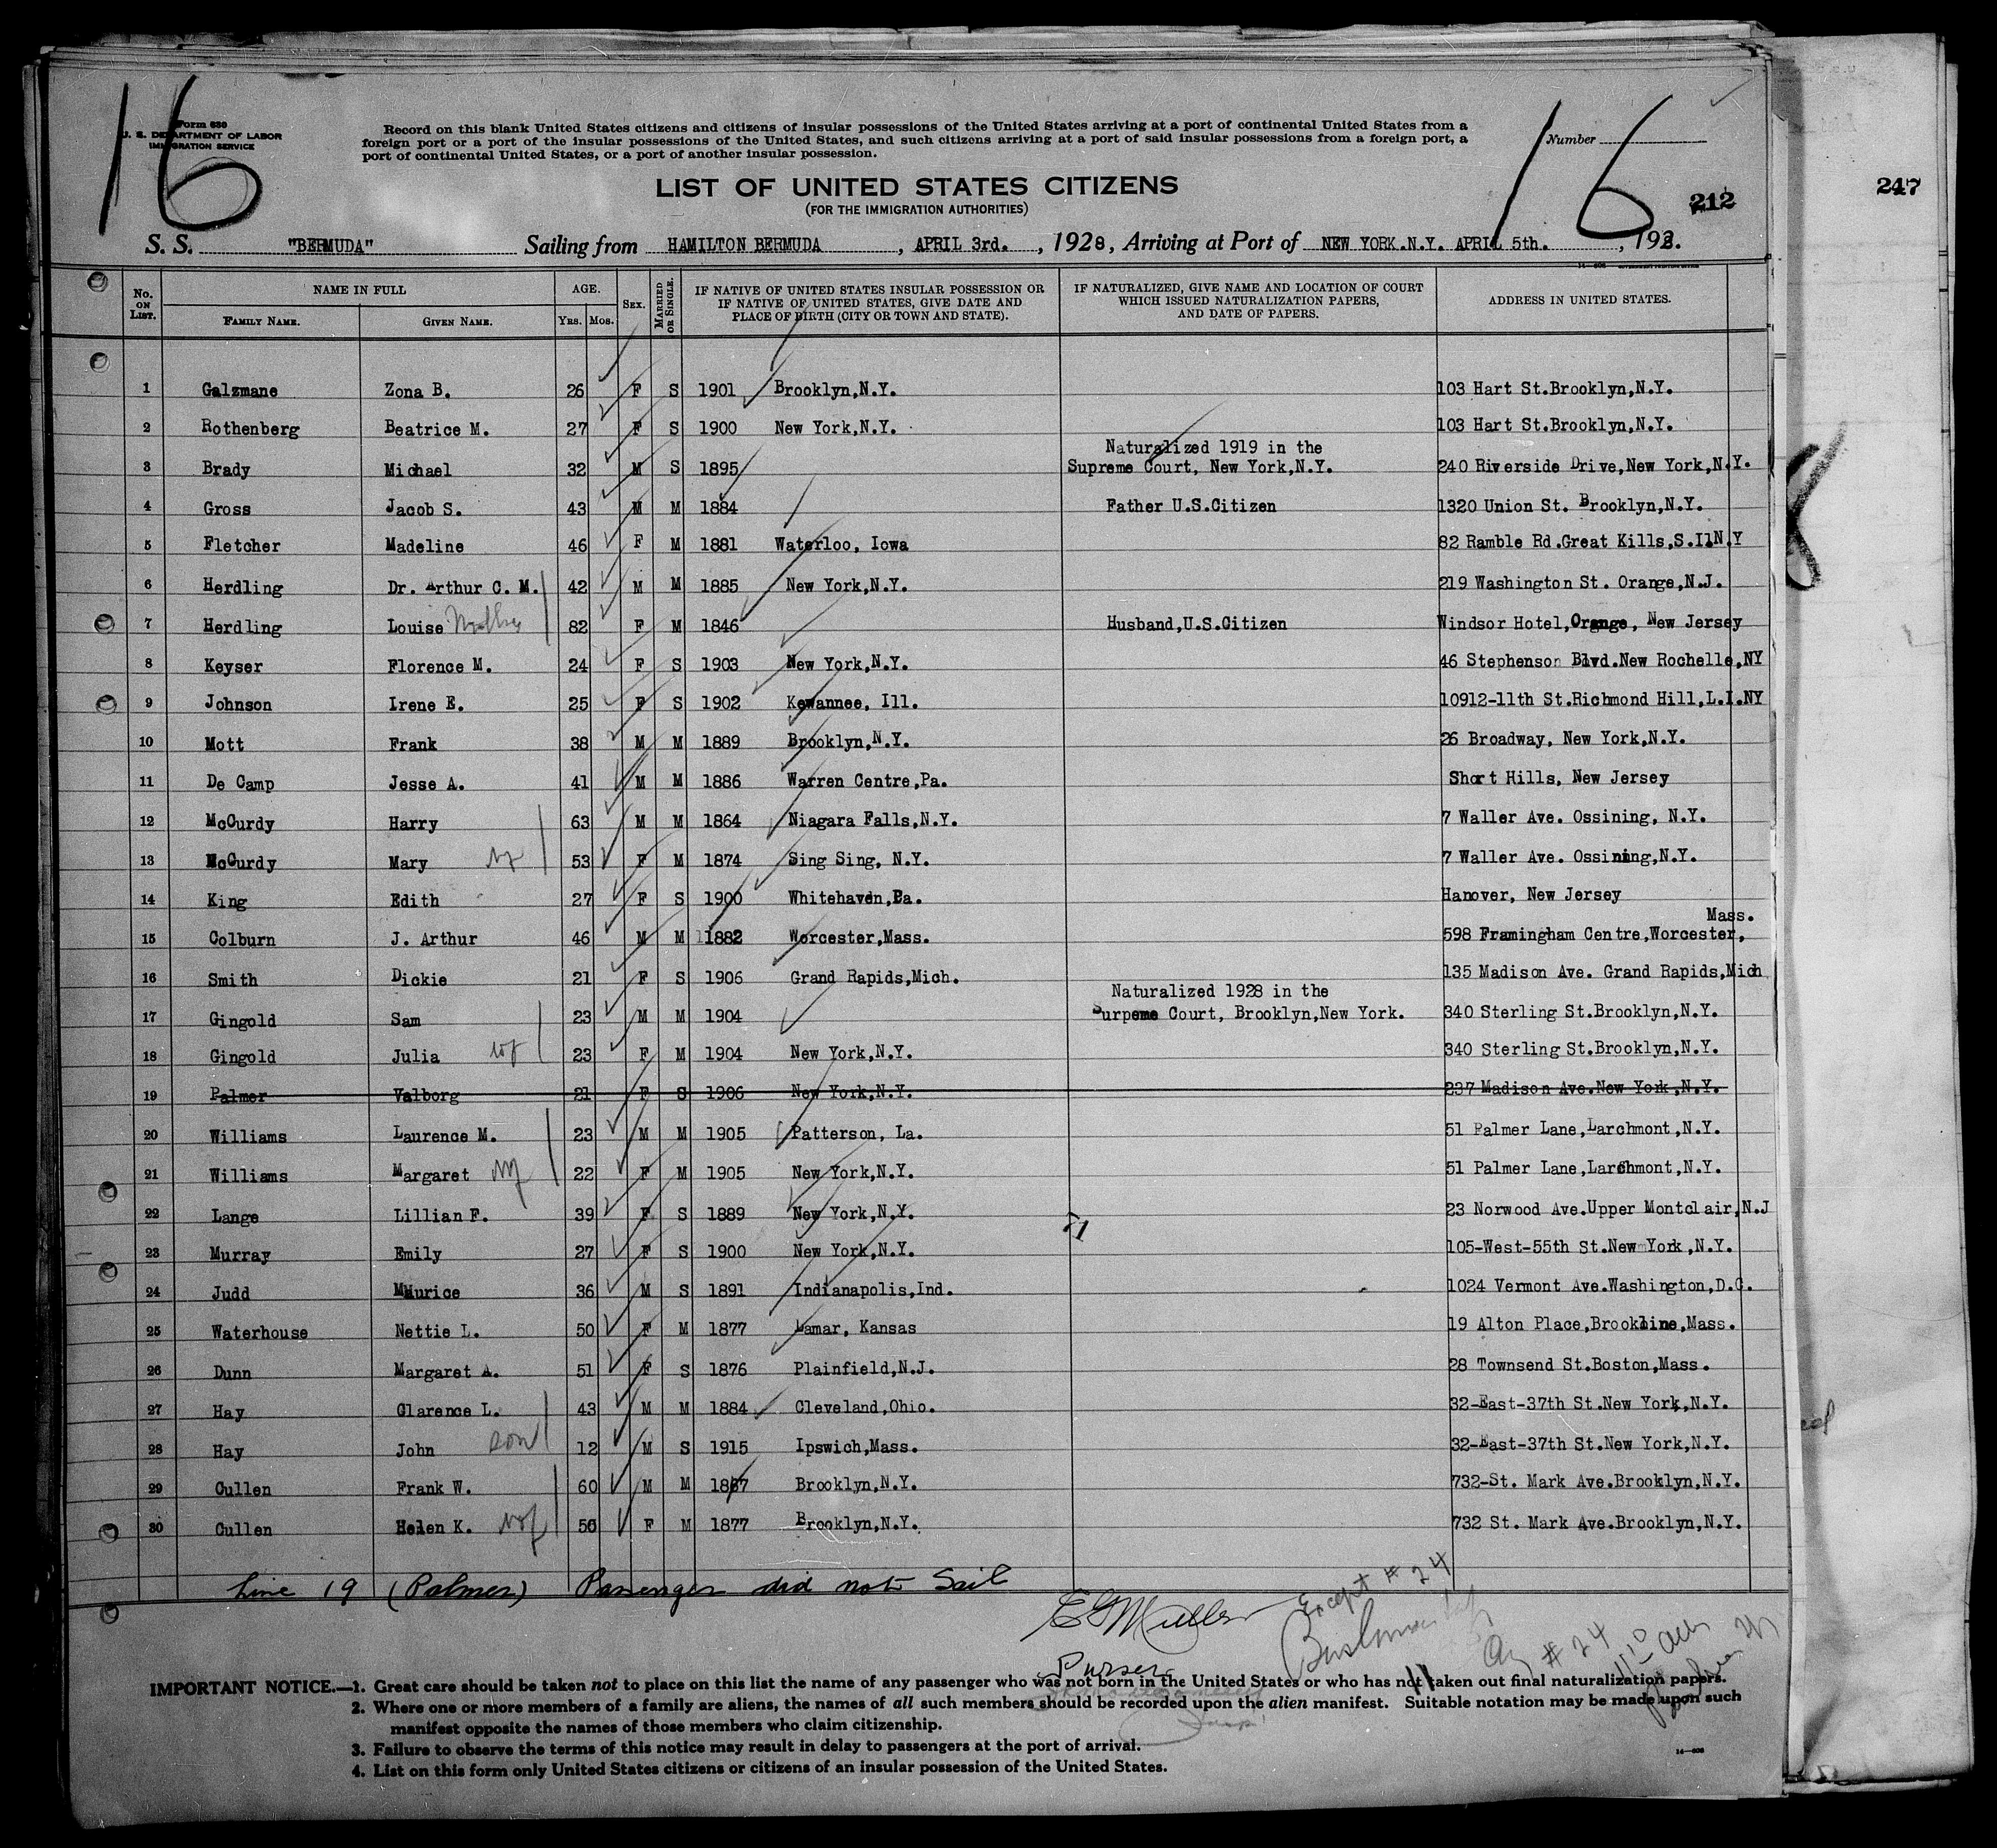 16
16
Form 630
U. S. DEPARTMENT OF LABOR
IMMIGRATION SERVICE
Record on this blank United States citizens and citizens of insular possessions of the United States arriving at a port of continental United States from a
foreign port or a port of the insular possessions of the United States, and such citizens arriving at a port of said insular possessions from a foreign port, a
port of continental United States, or a port of another insular possession.
Number
247
LIST OF UNITED STATES CITIZENS
(FOR THE IMMIGRATION AUTHORITIES)
212
S. S. "BERMUDA" Sailing from HAMILTON BERMUDA, APRIL 3rd., 1928, Arriving at Port of NEW YORK.N.Y. APRIL 5th., 1928.
No. ON LIST. NAME IN FULL FAMILY NAME. GIVEN NAME. AGE. YRS. MOS. SEX. MARRIED OR SINGLE. IF NATIVE OF UNITED STATES INSULAR POSSESSION OR IF NATIVE OF UNITED STATES, GIVE DATE AND PLACE OF BIRTH (CITY OR TOWN AND STATE). IF NATURALIZED, GIVE NAME AND LOCATION OF COURT WHICH ISSUED NATURALIZATION PAPERS, AND DATE OF PAPERS. ADDRESS IN UNITED STATES.
1 Galzmane Zona B. 26 F S 1901 Brooklyn,N.Y. 103 Hart St.Brooklyn,N.Y.
2 Rothenberg Beatrice M. 27 F S 1900 New York,N.Y. 103 Hart St.Brooklyn,N.Y.
3 Brady Michael 32 M S 1895 Naturalized 1919 in the Supreme Court, New York,N.Y. 240 Riverside Drive,New York,N.Y.
4 Gross Jacob S. 43 M M 1884 Father U.S.Citizen 1320 Union St. Brooklyn,N.Y.
5 Fletcher Madeline 46 F M 1881 Waterloo, Iowa 82 Ramble Rd.Great Kills,S.I.N.Y
6 Herdling Dr. Arthur C. M. 42 M M 1885 New York,N.Y. 219 Washington St. Orange,N.J.
7 Herdling Louise Mother 82 F M 1846 Husband,U.S.Citizen Windsor Hotel,Orange, New Jersey
8 Keyser Florence M. 24 F S 1903 New York,N.Y. 46 Stephenson Blvd.New Rochelle,NY
9 Johnson Irene E. 25 F S 1902 Kewannee, Ill. 10912-11th St.Richmond Hill,L.I.NY
10 Mott Frank 38 M M 1889 Brooklyn,N.Y. 26 Broadway, New York,N.Y.
11 De Camp Jesse A. 41 M M 1886 Warren Centre,Pa. Short Hills, New Jersey
12 McCurdy Harry 63 M M 1864 Niagara Falls,N.Y. 7 Waller Ave. Ossining, N.Y.
13 McCurdy Mary wf 53 F M 1874 Sing Sing, N.Y. 7 Waller Ave. Ossining,N.Y.
14 King Edith 27 F S 1900 Whitehaven,Pa. Hanover, New Jersey
15 Colburn J. Arthur 46 M M 1882 Worcester,Mass. 598 Framingham Centre,Worcester, Mass.
16 Smith Dickie 21 F S 1906 Grand Rapids,Mich. 135 Madison Ave. Grand Rapids,Mich
17 Gingold Sam 23 M M 1904 Naturalized 1928 in the Surpeme Court, Brooklyn,New York. 340 Sterling St.Brooklyn,N.Y.
18 Gingold Julia wf 23 F M 1904 New York,N.Y. 340 Sterling St.Brooklyn,N.Y.
19 Palmer Valborg 21 F S 1906 New York,N.Y. 237 Madison Ave.New York,N.Y.
20 Williams Laurence M. 23 M M 1905 Patterson, La. 51 Palmer Lane,Larchmont,N.Y.
21 Williams Margaret wf 22 F M 1905 New York,N.Y. 51 Palmer Lane,Larchmont,N.Y.
22 Lange Lillian F. 39 F S 1889 New York,N.Y. 23 Norwood Ave.Upper Montclair,N.J
23 Murray Emily 27 F S 1900 New York,N.Y. 105-West-55th St.New York,N.Y.
24 Judd Maurice 36 M S 1891 Indianapolis,Ind. 1024 Vermont Ave.Washington,D.C.
25 Waterhouse Nettie L. 50 F M 1877 Lamar, Kansas 19 Alton Place,Brookline,Mass.
26 Dunn Margaret A. 51 F S 1876 Plainfield,N.J. 28 Townsend St.Boston,Mass.
27 Hay Clarence L. 43 M M 1884 Cleveland,Ohio. 32-East-37th St.New York,N.Y.
28 Hay John son 12 M S 1915 Ipswich,Mass. 32-East-37th St.New York,N.Y.
29 Cullen Frank W. 60 M M 1867 Brooklyn,N.Y. 732-St. Mark Ave.Brooklyn,N.Y.
30 Cullen Helen K. wf 50 F M 1877 Brooklyn,N.Y. 732 St. Mark Ave.Brooklyn,N.Y.
Line 19 (Palmer) Passenger did not Sail
Except # 24
Purser
# 24
IMPORTANT NOTICE.—1. Great care should be taken not to place on this list the name of any passenger who was not born in the United States or who has not taken out final naturalization papers.
2. Where one or more members of a family are aliens, the names of all such members should be recorded upon the alien manifest. Suitable notation may be made upon such
manifest opposite the names of those members who claim citizenship.
3. Failure to observe the terms of this notice may result in delay to passengers at the port of arrival.
4. List on this form only United States citizens or citizens of an insular possession of the United States.